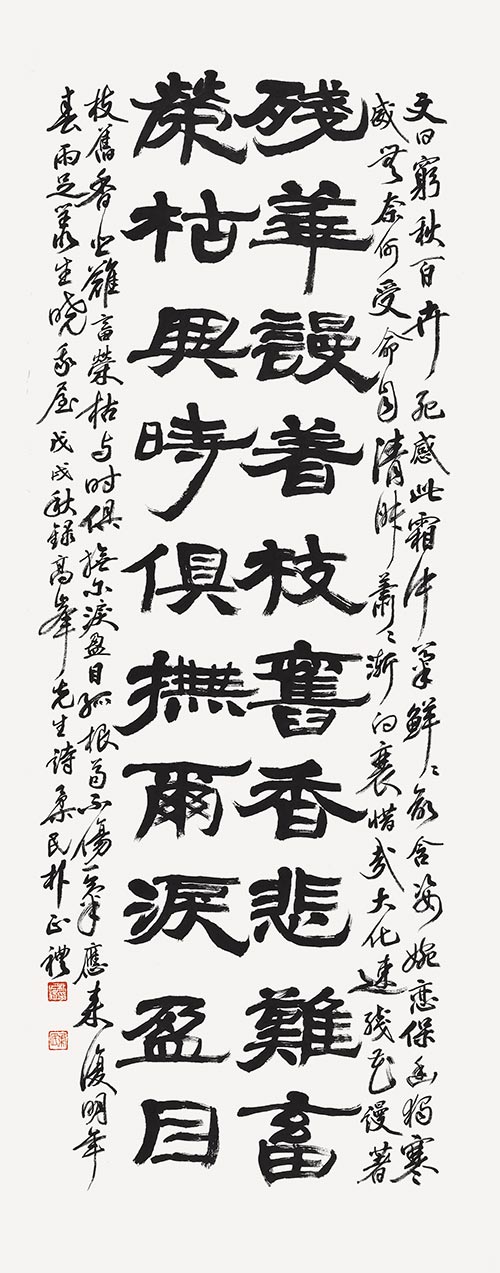 又曰窮秋百卉死感此霜中菊鮮鮮能含姿婉戀保幽獨寒
威無奈何受命自清肅蕭々漸向衰惜哉大化速殘花謾著
殘華謾着枝舊香悲難畜
榮枯與時俱撫爾淚盈目
枝舊香悲難畜榮枯与时俱撫尔淚盈目孤根苟不傷一氣應來復明年
春雨足叢生曉我屋戊戌秋錄高峯先生詩桑民朴正禮